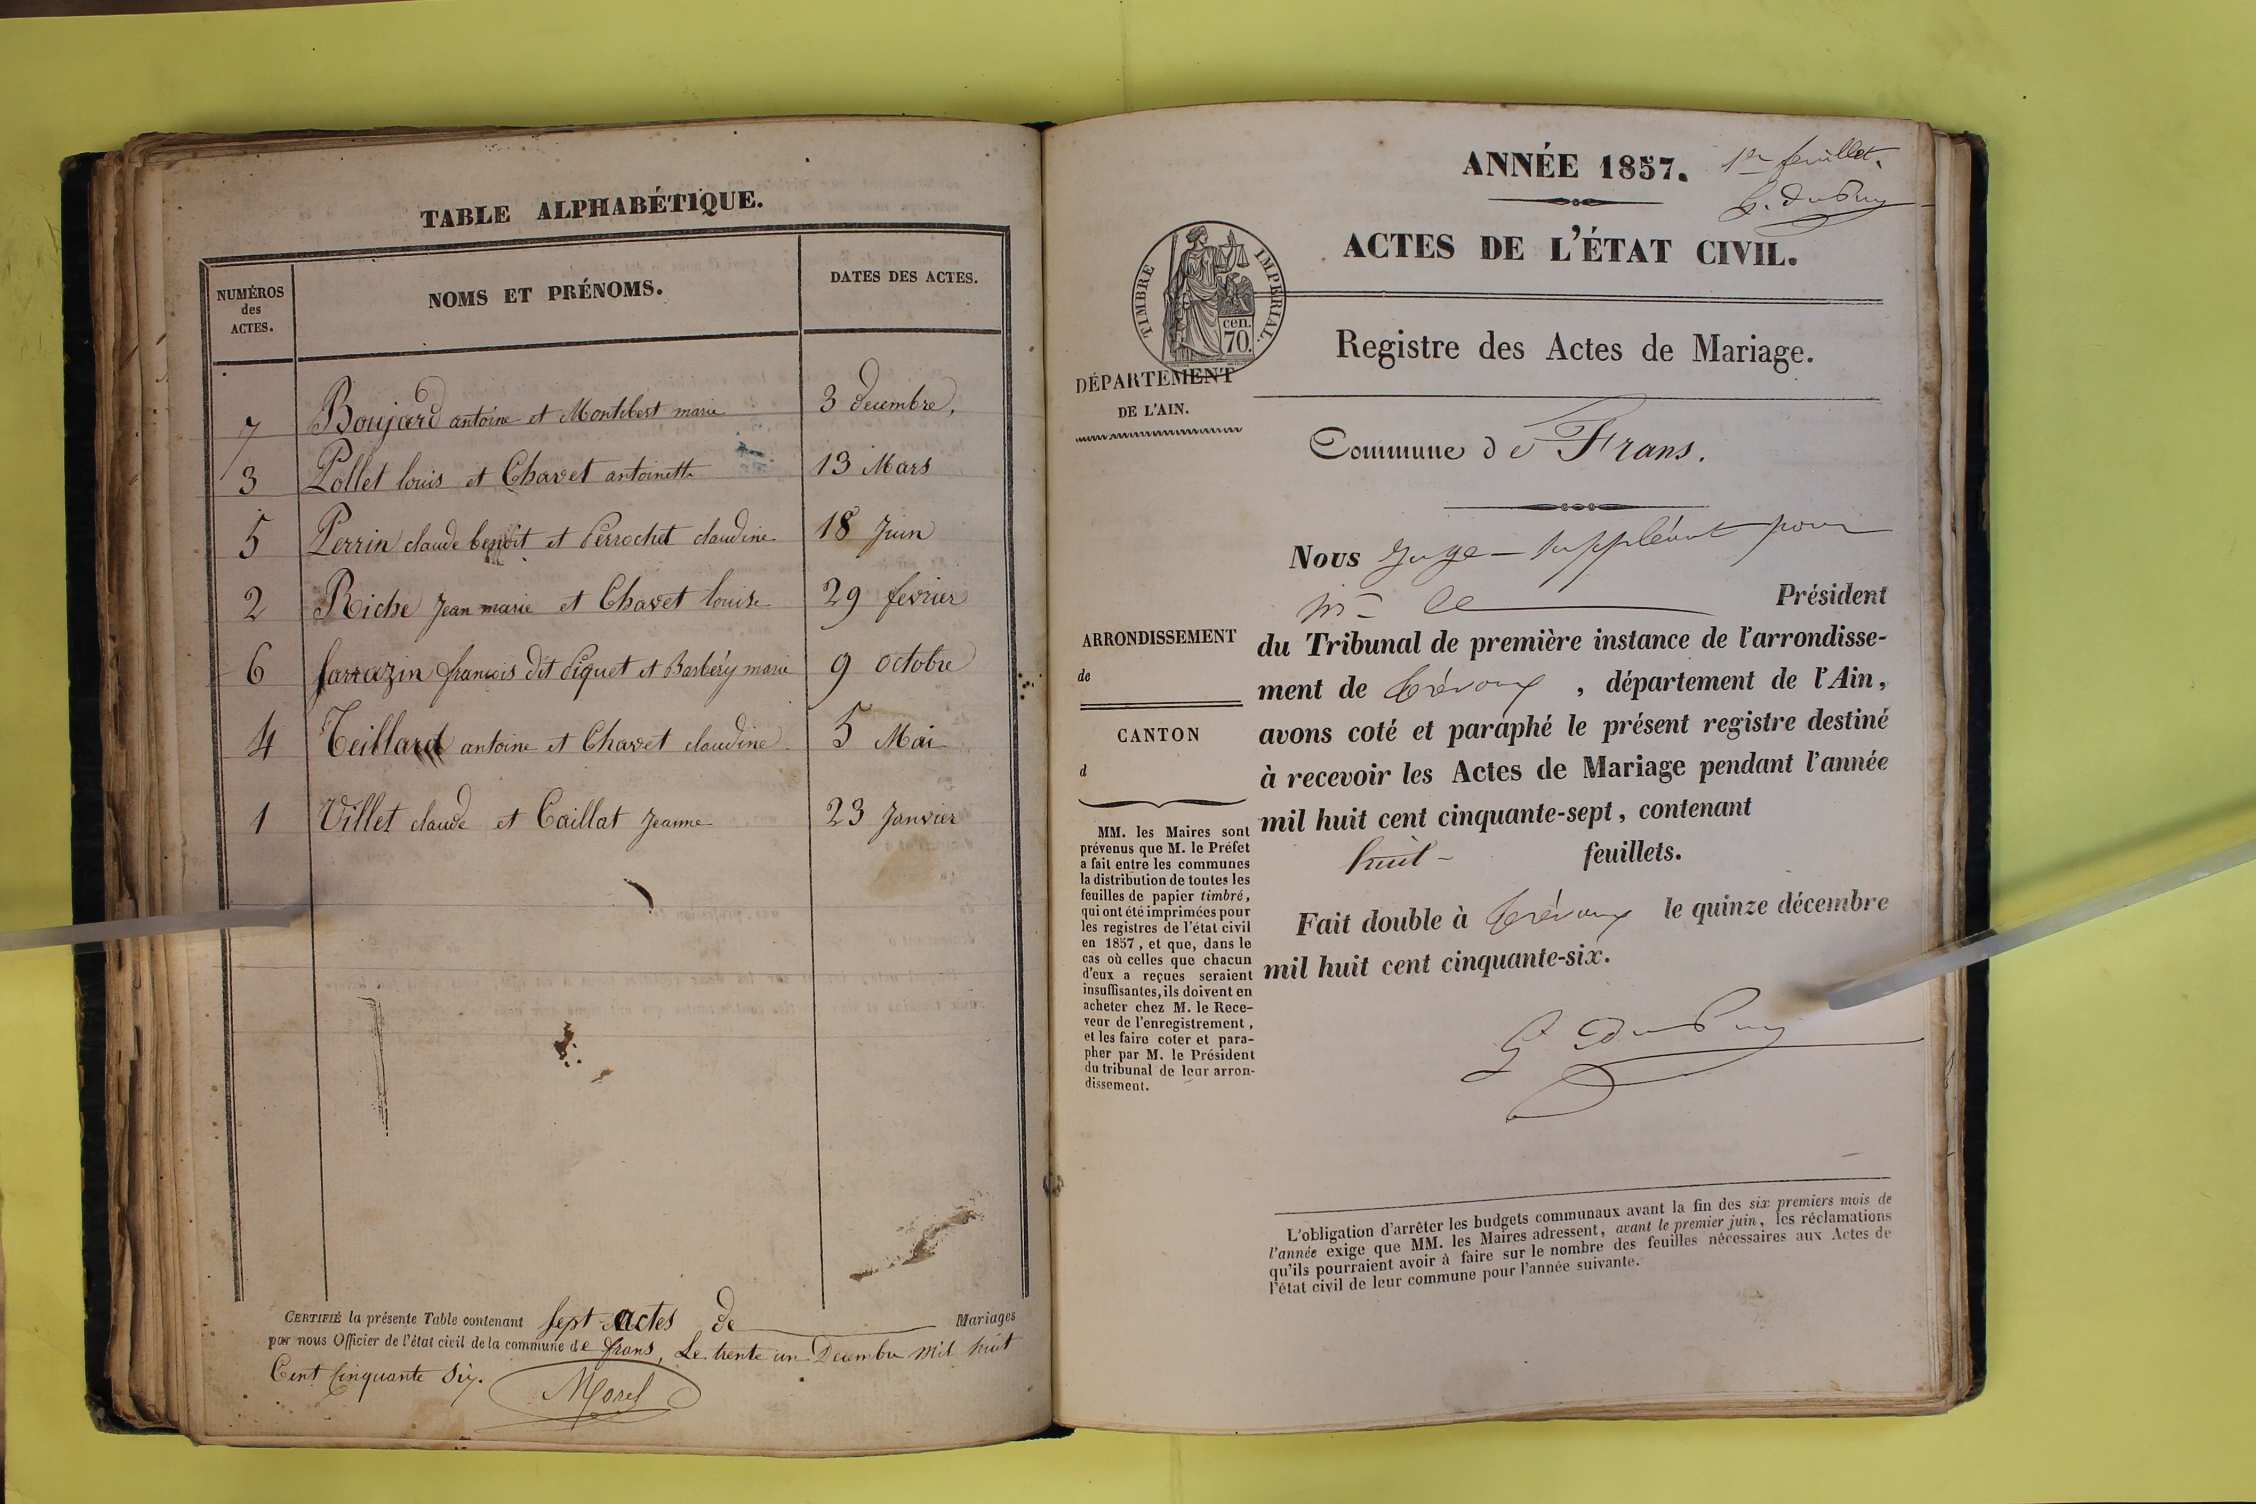 TABLE ALPHABÉTIQUE.
NUMÉROS
des
ACTES.
NOMS ET PRÉNOMS.
DATES DES ACTES.
7 Boujard antoine et Montibest marie 3 decembre,
3 Pollet louis et Chavet antoinette 13 Mars
5 Perrin claude benoit et Perrochet claudine 18 Juin
2 Riche Jean marie et Chavet louise 29 fevrier
6 Sarrazin francois dit Piquet et Barbéry marie 9 octobre
4 Teillard antoine et Chavet claudine 5 Mai
1 Villet claude et Caillat Jeanne 23 Janvier
CERTIFIÉ la présente Table contenant sept Actes de Mariages
par nous Officier de l'état civil de la commune de frans, Le trente un Decembre mil huit
Cent Cinquante Six.
Morel
ANNÉE 1857.
1er feuillet.
G. DuPuy
ACTES DE L'ÉTAT CIVIL.
TIMBRE IMPÉRIAL.
cen.
70.
Registre des Actes de Mariage.
DÉPARTEMENT
DE L'AIN.
Commune de Frans.
Nous Juge-suppléant pour
Mr le Président
du Tribunal de première instance de l'arrondisse-
ment de Trévoux, département de l'Ain,
avons coté et paraphé le présent registre destiné
à recevoir les Actes de Mariage pendant l'année
mil huit cent cinquante-sept, contenant
huit feuillets.
Fait double à Trévoux le quinze décembre
mil huit cent cinquante-six.
G DuPuy
ARRONDISSEMENT
de
CANTON
d
MM. les Maires sont
prévenus que M. le Préfet
a fait entre les communes
la distribution de toutes les
feuilles de papier timbré,
qui ont été imprimées pour
les registres de l'état civil
en 1857, et que, dans le
cas où celles que chacun
d'eux a reçues seraient
insuffisantes, ils doivent en
acheter chez M. le Rece-
veur de l'enregistrement,
et les faire coter et para-
pher par M. le Président
du tribunal de leur arron-
dissement.
L'obligation d'arrêter les budgets communaux avant la fin des six premiers mois de
l'année exige que MM. les Maires adressent, avant le premier juin, les réclamations
qu'ils pourraient avoir à faire sur le nombre des feuilles nécessaires aux Actes de
l'état civil de leur commune pour l'année suivante.